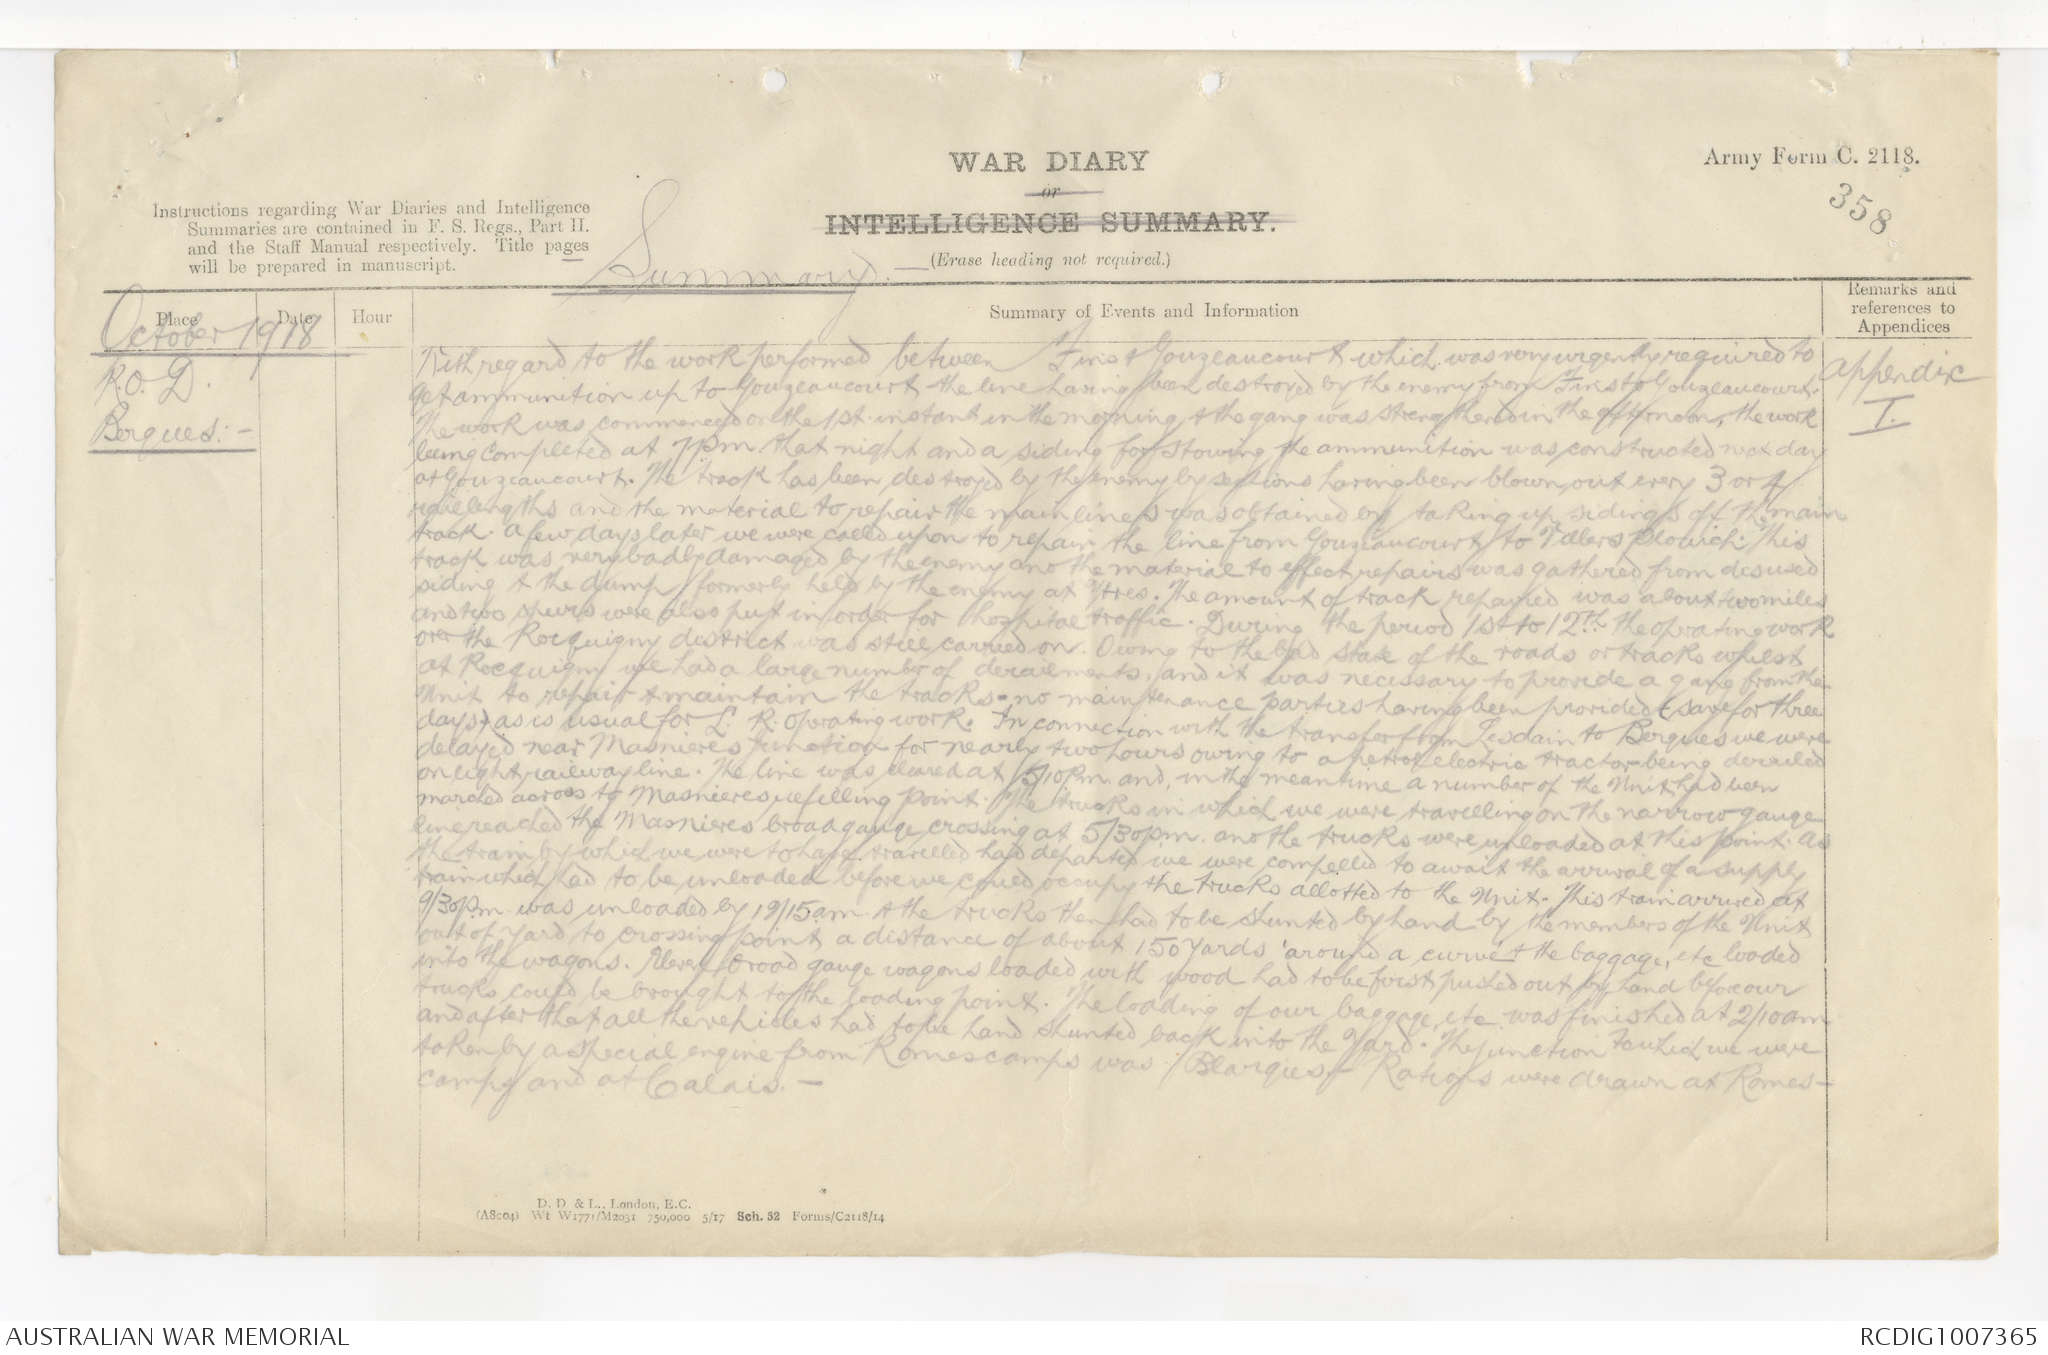 WAR DIARY
or
INTELLIGENCE SUMMARY.
(Erase heading not required.)
Army Form C. 2118.
358
Instructions regarding War Diaries and Intelligence
Summaries are contained in F. S. Regs., Part II.
and the Staff Manual respectively. Title pages
will be prepared in manuscript.
Summary. —
Place
Date
Hour
Summary of Events and Information
Remarks and
references to
Appendices
October 1918
R.O.D.
Bergues:-
Appendix
I.
With regard to the work performed between Fins & Gouzeaucourt which was very urgently required to
get ammunition up to Gouzeaucourt the line having been destroyed by the enemy from Fins to Gouzeaucourt.
The work was commenced on the 1st instant in the morning & the gang was strengthened in the afternoon, the work
being completed at 7pm that night and a siding for stowing the ammunition was constructed next day
at Gouzeaucourt. The track has been destroyed by the enemy by sections having been blown out every 3 or 4
rail lengths and the material to repair the main lines was obtained by taking up sidings off the main
track. A few days later we were called upon to repair the line from Gouzeaucourt to Villers Plouich. This
track was very badly damaged by the enemy and the material to effect repairs was gathered from disused
siding & the dump formerly held by the enemy at Ytres. The amount of track repaired was about two miles
and two spurs were also put in order for hospital traffic. During the period 1st to 12th the operating work
over the Rocquigny district was still carried on. Owing to the bad state of the roads or tracks whilst
at Rocquigny we had a large number of derailments, and it was necessary to provide a gang from the
Unit to repair & maintain the tracks - no maintenance parties having been provided (save for three
days) as is usual for L. R. operating work. In connection with the transfer from Lesdain to Bergues we were
delayed near Masnieres Junction for nearly two hours owing to a petrol electric tractor being derailed
on light railway line. The line was cleared at 5/10pm and, in the meantime a number of the Unit had been
marched across to Masnieres refilling point. The trucks in which we were travelling on the narrow gauge
line reached the Masnieres broad gauge crossing at 5/30pm. and the trucks were unloaded at this point. As
the train by which we were to have travelled had departed we were compelled to await the arrival of a supply
train which had to be unloaded before we could occupy the trucks allotted to the Unit. This train arrived at
9/30pm. was unloaded by 12/15am & the trucks then had to be shunted by hand by the members of the Unit
out of Yard to crossing point a distance of about 150 yards 'around a curve' & the baggage, etc loaded
into the wagons. Eleven broad gauge wagons loaded with wood had to be first pushed out by hand before our
trucks could be brought to the loading point. The loading of our baggage, etc. was finished at 2/10am
and after that all the vehicles had to be hand shunted back into the Yard. The junction to which we were
taken by a special engine from Romescamps was Blarques - Rations were drawn at Romes-
camps and at Calais. —
D. D. & L., London, E.C.
(A8c04) Wt W1771/M2031 750,000 5/17 Sch. 52 Forms/C2118/14
AUSTRALIAN WAR MEMORIAL
RCDIG1007365